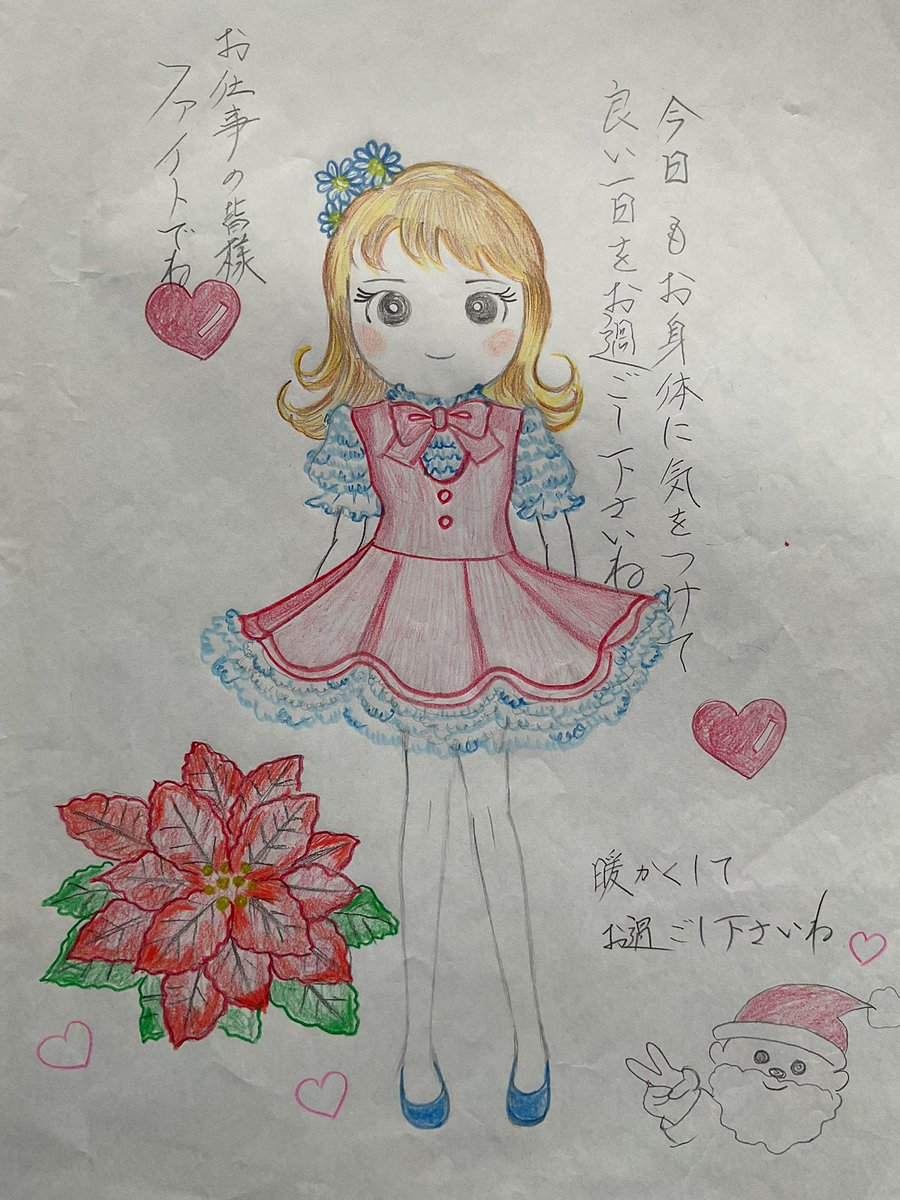 今日もお身体に気をつけて
良い一日をお過ごし下さいね
お仕事の皆様
ファイトでね
暖かくして
お過ごし下さいね